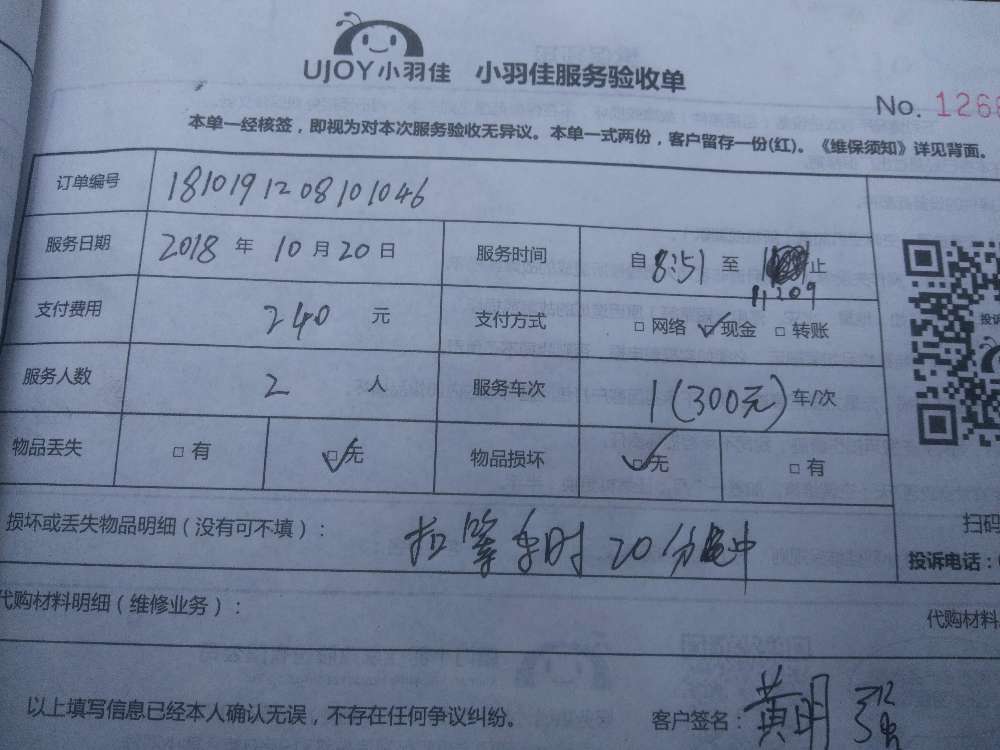 UJOY小羽佳 小羽佳服务验收单
No. 126
本单一经核签，即视为对本次服务验收无异议。本单一式两份，客户留存一份(红)。《维保须知》详见背面。
订单编号 1810191208101046
服务日期 2018 年 10 月 20 日 服务时间 自 8:51 至 止
支付费用 240 元 支付方式 □ 网络 ☑ 现金 □ 转账
服务人数 2 人 服务车次 1(300元) 车/次
物品丢失 □ 有 ☑ 无 物品损坏 ☑ 无 □ 有
损坏或丢失物品明细（没有可不填）： 扣等车时20分钟
扫码
投诉电话：
代购材料明细（维修业务）： 代购材料
以上填写信息已经本人确认无误，不存在任何争议纠纷。 客户签名： 黄明强